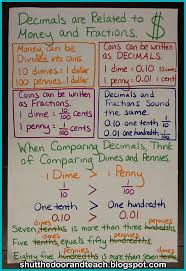 Decimals are Related to
Money and Fractions. $
Money can be
Divided into Coins.
10 dimes = 1 dollar
100 pennies = 1 dollar
Coins can be written
as DECIMALS.
1 dime = 0.10 cents
1 penny = 0.01 cent
Coins can be written
as Fractions.
1 dime = 10/100 cents
1 penny = 1/100 cent
Decimals and
Fractions Sound
the same.
0.10 ten hundredths
0.01 one hundredth
When Comparing Decimals, Think
of Comparing Dimes and Pennies.
1 Dime > 1 Penny
1/10 > 1/100
One tenth > One hundredth
0.10 > 0.01
dimes pennies
Seven tenths is more than three hundredths
dimes pennies
Five tenths equals fifty hundredths.
pennies
Seven tenths is more than three hundredths
shutthedoorandteach.blogspot.com